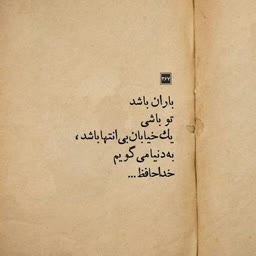 ۲۶۷
باران باشد
تو باشی
یک خیابان بی‌انتها باشد،
به دنیا می‌گویم
خداحافظ...